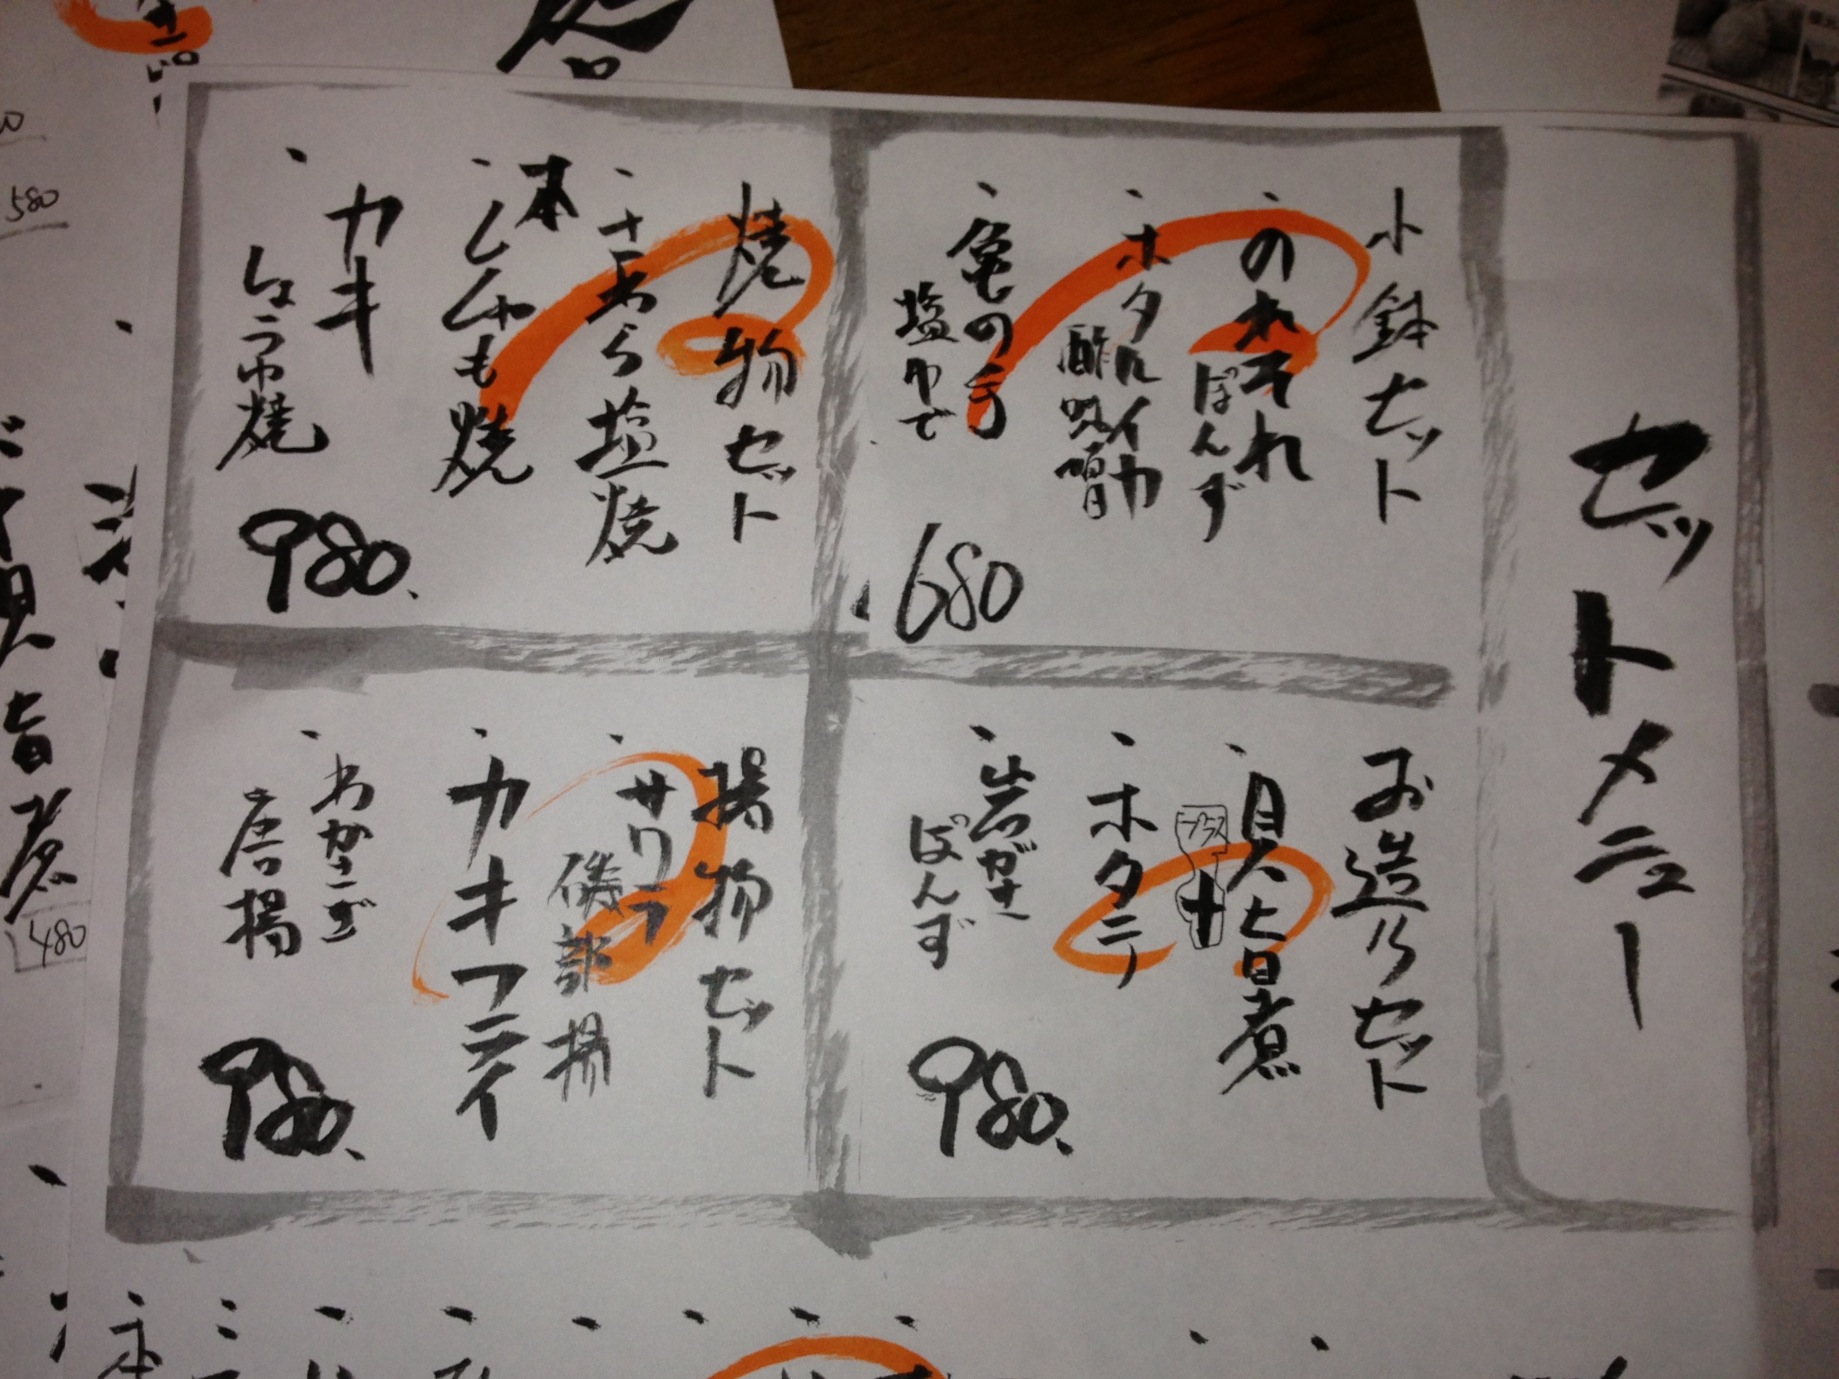 セットメニュー
小鉢セット
、のれそれ
ぽんず
、ホタルイカ
酢味噌
、亀の手
塩ゆで
680
焼物セット
、さわら塩焼
、本ししゃも焼
、カキ
しょうゆ焼
980、
お造りセット
、貝七旨煮
プラス
十
、ホタテ
、岩がき
ぽんず
980、
揚物セット
、サワラ
磯部揚
、カキフライ
、わかさぎ
唐揚
980、
580
貝旨煮
480